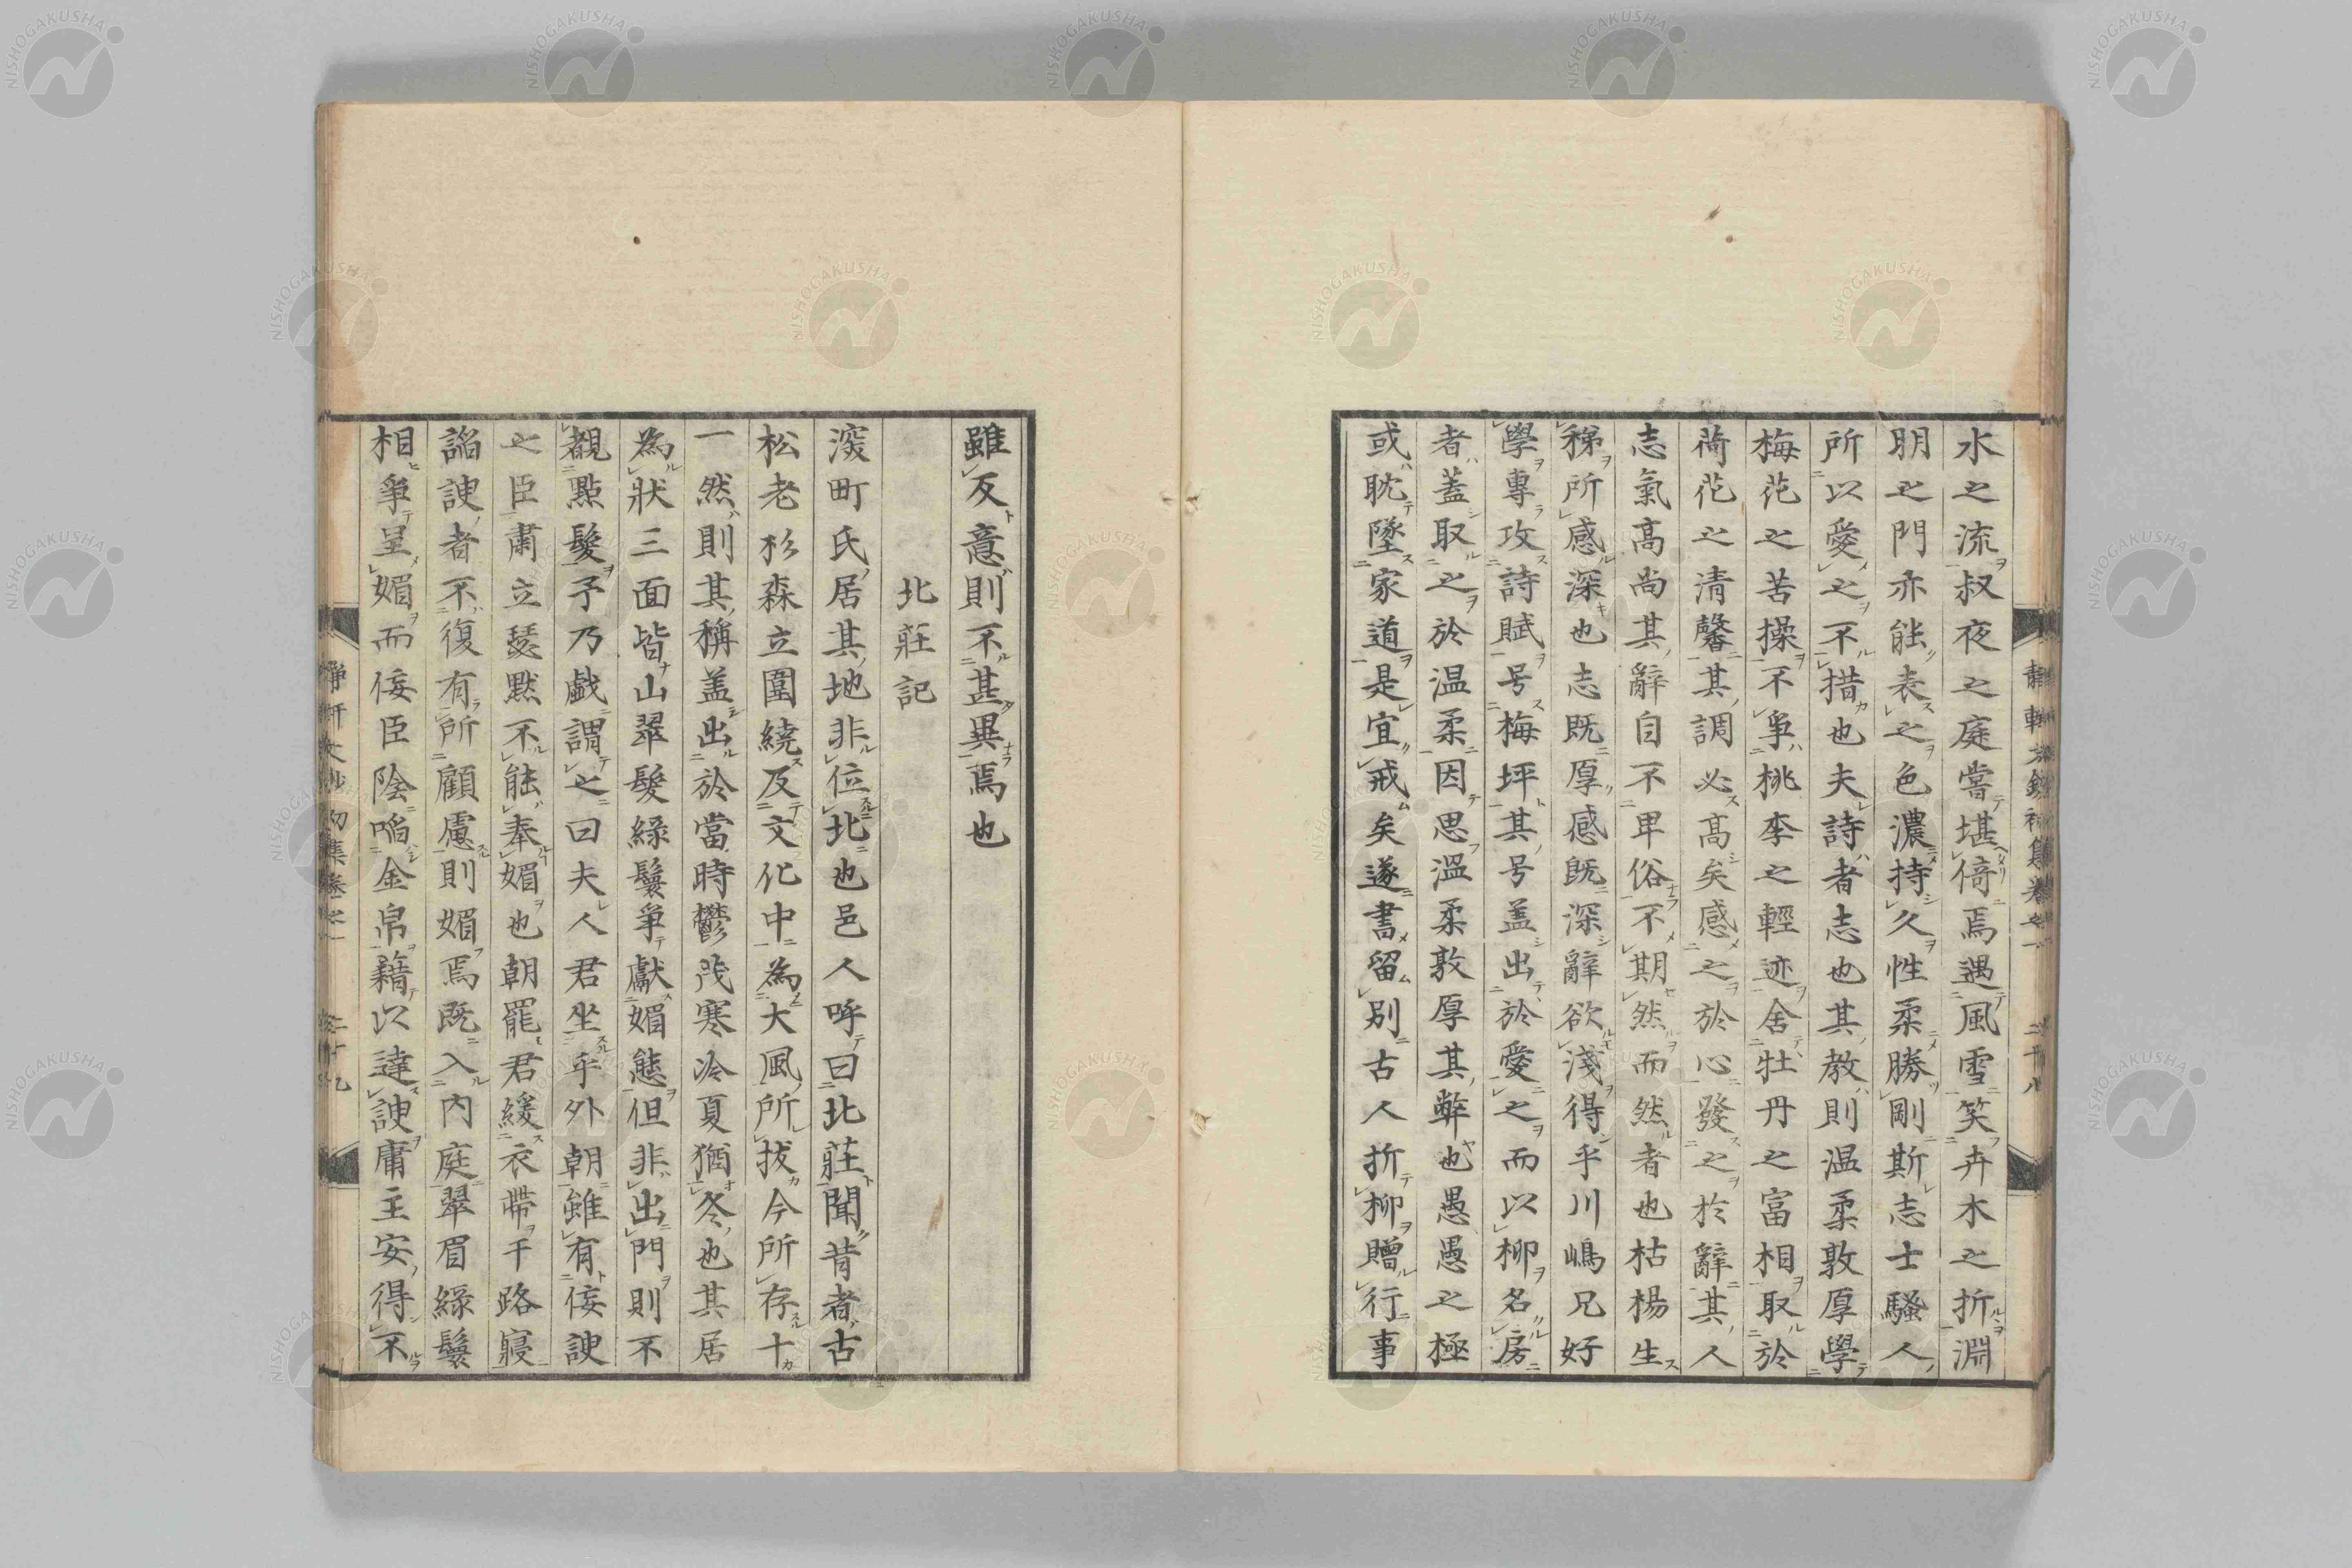 水之流叔夜之庭嘗堪倚焉遇風雪笑卉木之折淵
明之門亦能表之色濃持久性柔勝剛斯志士騷人
所以愛之不措也夫詩者志也其教則温柔敦厚學
梅花之苦操不爭桃李之輕迹舍牡丹之富相取於
荷花之清馨其調必高矣感之於心發之於辭其人
志氣高尚其辭自不卑俗不期然而然者也枯楊生
稊所感深也志既厚感既深辭欲淺得乎川嶋兄好
學專攻詩賦号梅坪其号盖出於愛之而以柳名房
者蓋取之於温柔因思溫柔敦厚其弊也愚愚之極
或耽墜家道是宜戒矣遂書留別古人折柳贈行事
雖反意則不甚異焉也
北莊記
滾町氏居其地非位北也邑人呼曰北莊聞昔者古
松老杉森立圍繞及文化中為大風所拔今所存十
一然則其稱盖出於當時鬱茂寒冷夏猶冬也其居
為狀三面皆山翠髮緑鬟爭獻媚態但非出門則不
覩點髮予乃戯謂之曰夫人君坐乎外朝雖有侫諛
之臣肅立瑟默不能奉媚也朝罷君緩衣帶干路寢
諂諛者不復有所顧慮則媚焉既入内庭翠眉緑鬟
相爭呈媚而侫臣陰啗金帛藉以達諛庸主安得不
二十八
二十九
NISHOGAKUSHA